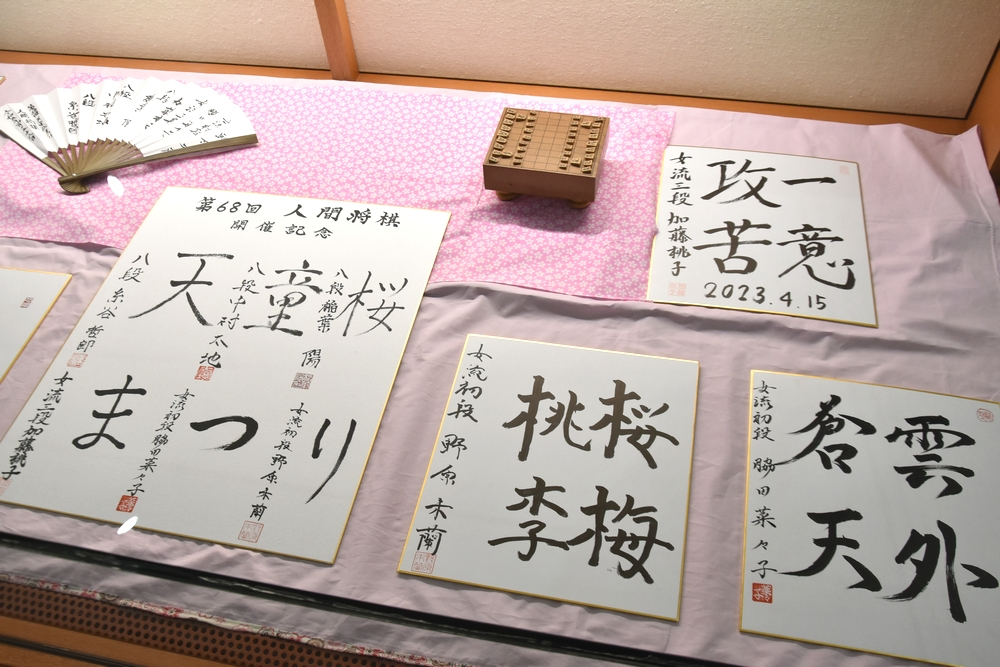 第68回 人間将棋
開催記念
天童桜
まつり
八段 稲葉 陽
八段 中村 太地
八段 糸谷 哲郎
女流初段 野原未蘭
女流初段 脇田菜々子
女流三段 加藤桃子
一意
攻苦
女流三段 加藤桃子
2023.4.15
桜梅
桃李
女流初段 野原未蘭
雲外
蒼天
女流初段 脇田菜々子
八段
糸谷哲郎